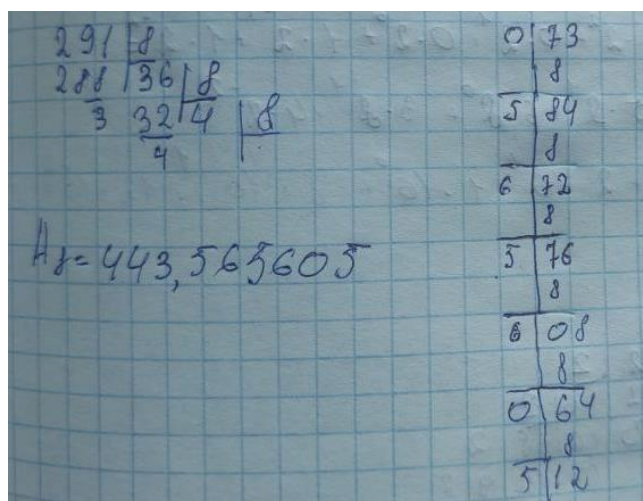 291 8
288 36 8
3 32 4 8
4
A8=443,565605
0 73
8
5 84
8
6 72
8
5 76
8
6 08
8
0 64
8
5 12